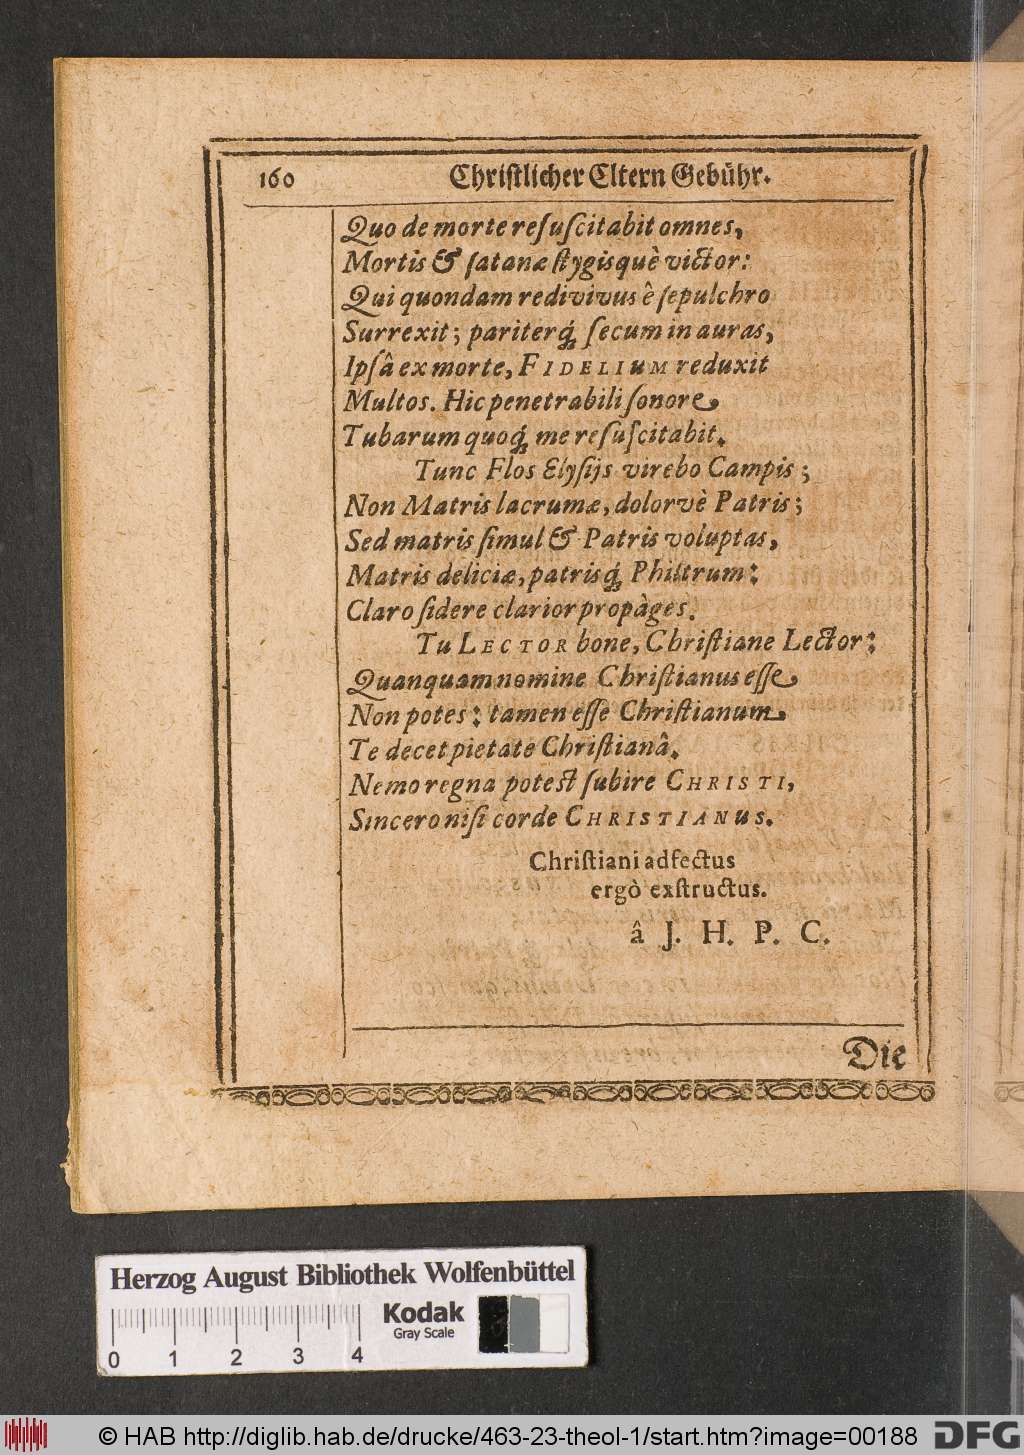 160 Christlicher Eltern Gebühr.
Quo de morte reſuſcitabit omnes,
Mortis & ſatanæ ſtygisquè victor:
Qui quondam redivivus è ſepulchro
Surrexit; pariterq́; ſecum in auras,
Ipſâ ex morte, FIDELIUM reduxit
Multos. Hic penetrabili ſonore
Tubarum quoq́; me reſuſcitabit.
Tunc Flos Elyſijs virebo Campis;
Non Matris lacrumæ, dolorvè Patris;
Sed matris ſimul & Patris voluptas,
Matris deliciæ, patrisq́; Philtrum:
Claro ſidere clarior propàges.
Tu LECTOR bone, Chriſtiane Lector:
Quanquam nomine Chriſtianus eſſe
Non potes: tamen eſſe Chriſtianum
Te decet pietate Chriſtianâ.
Nemo regna potest ſubire CHRISTI,
Sincero niſi corde CHRISTIANUS.
Chriſtiani adfectus
ergò exſtructus.
â J. H. P. C.
Die
Herzog August Bibliothek Wolfenbüttel
Kodak
Gray Scale
0 1 2 3 4
© HAB http://diglib.hab.de/drucke/463-23-theol-1/start.htm?image=00188 DFG
DFG